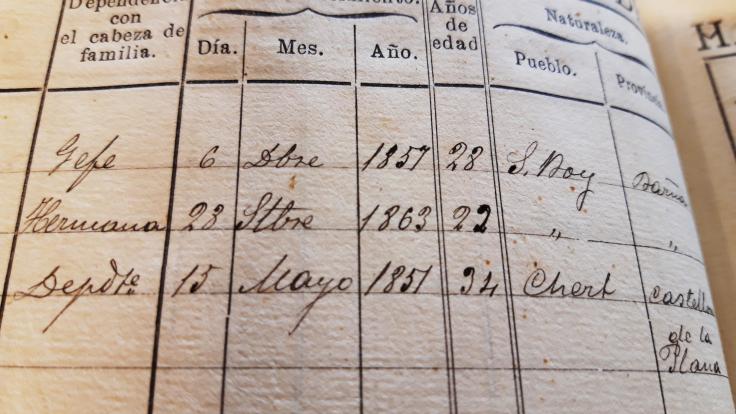 Dependencia
con
el cabeza de
familia.
Día. Mes. Año.
Años
de
edad
Naturaleza.
Pueblo. Provincia
Gefe 6 Dbre 1857 28 S. Boy Barna
Hermana 23 Stbre 1863 22 " "
Depdte 15 Mayo 1851 34 Chert Castellon
de la
Plana